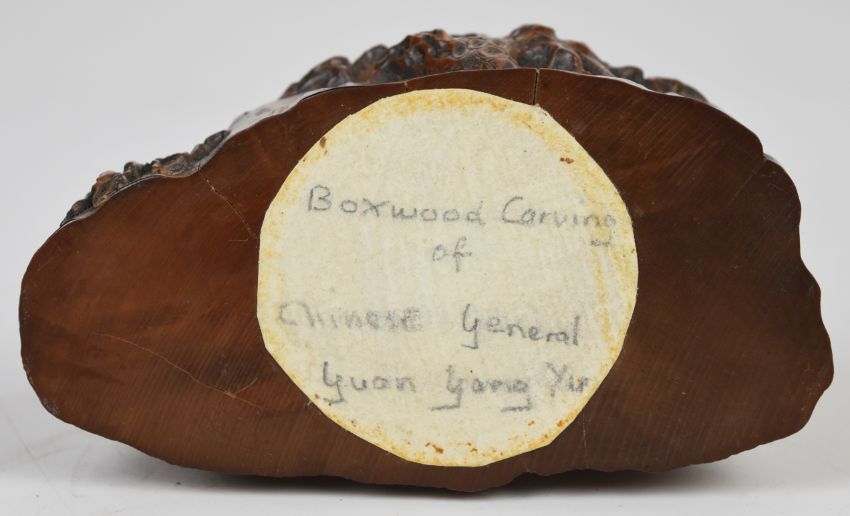 Boxwood Carving
of
Chinese General
Guan Gong Yu